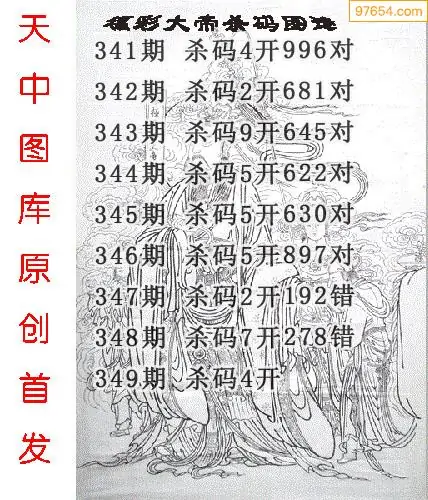 97654.com
福彩大帝杀码图迷
341期 杀码4开996对
342期 杀码2开681对
343期 杀码9开645对
344期 杀码5开622对
345期 杀码5开630对
346期 杀码5开897对
347期 杀码2开192错
348期 杀码7开278错
349期 杀码4开
天中图库原创首发